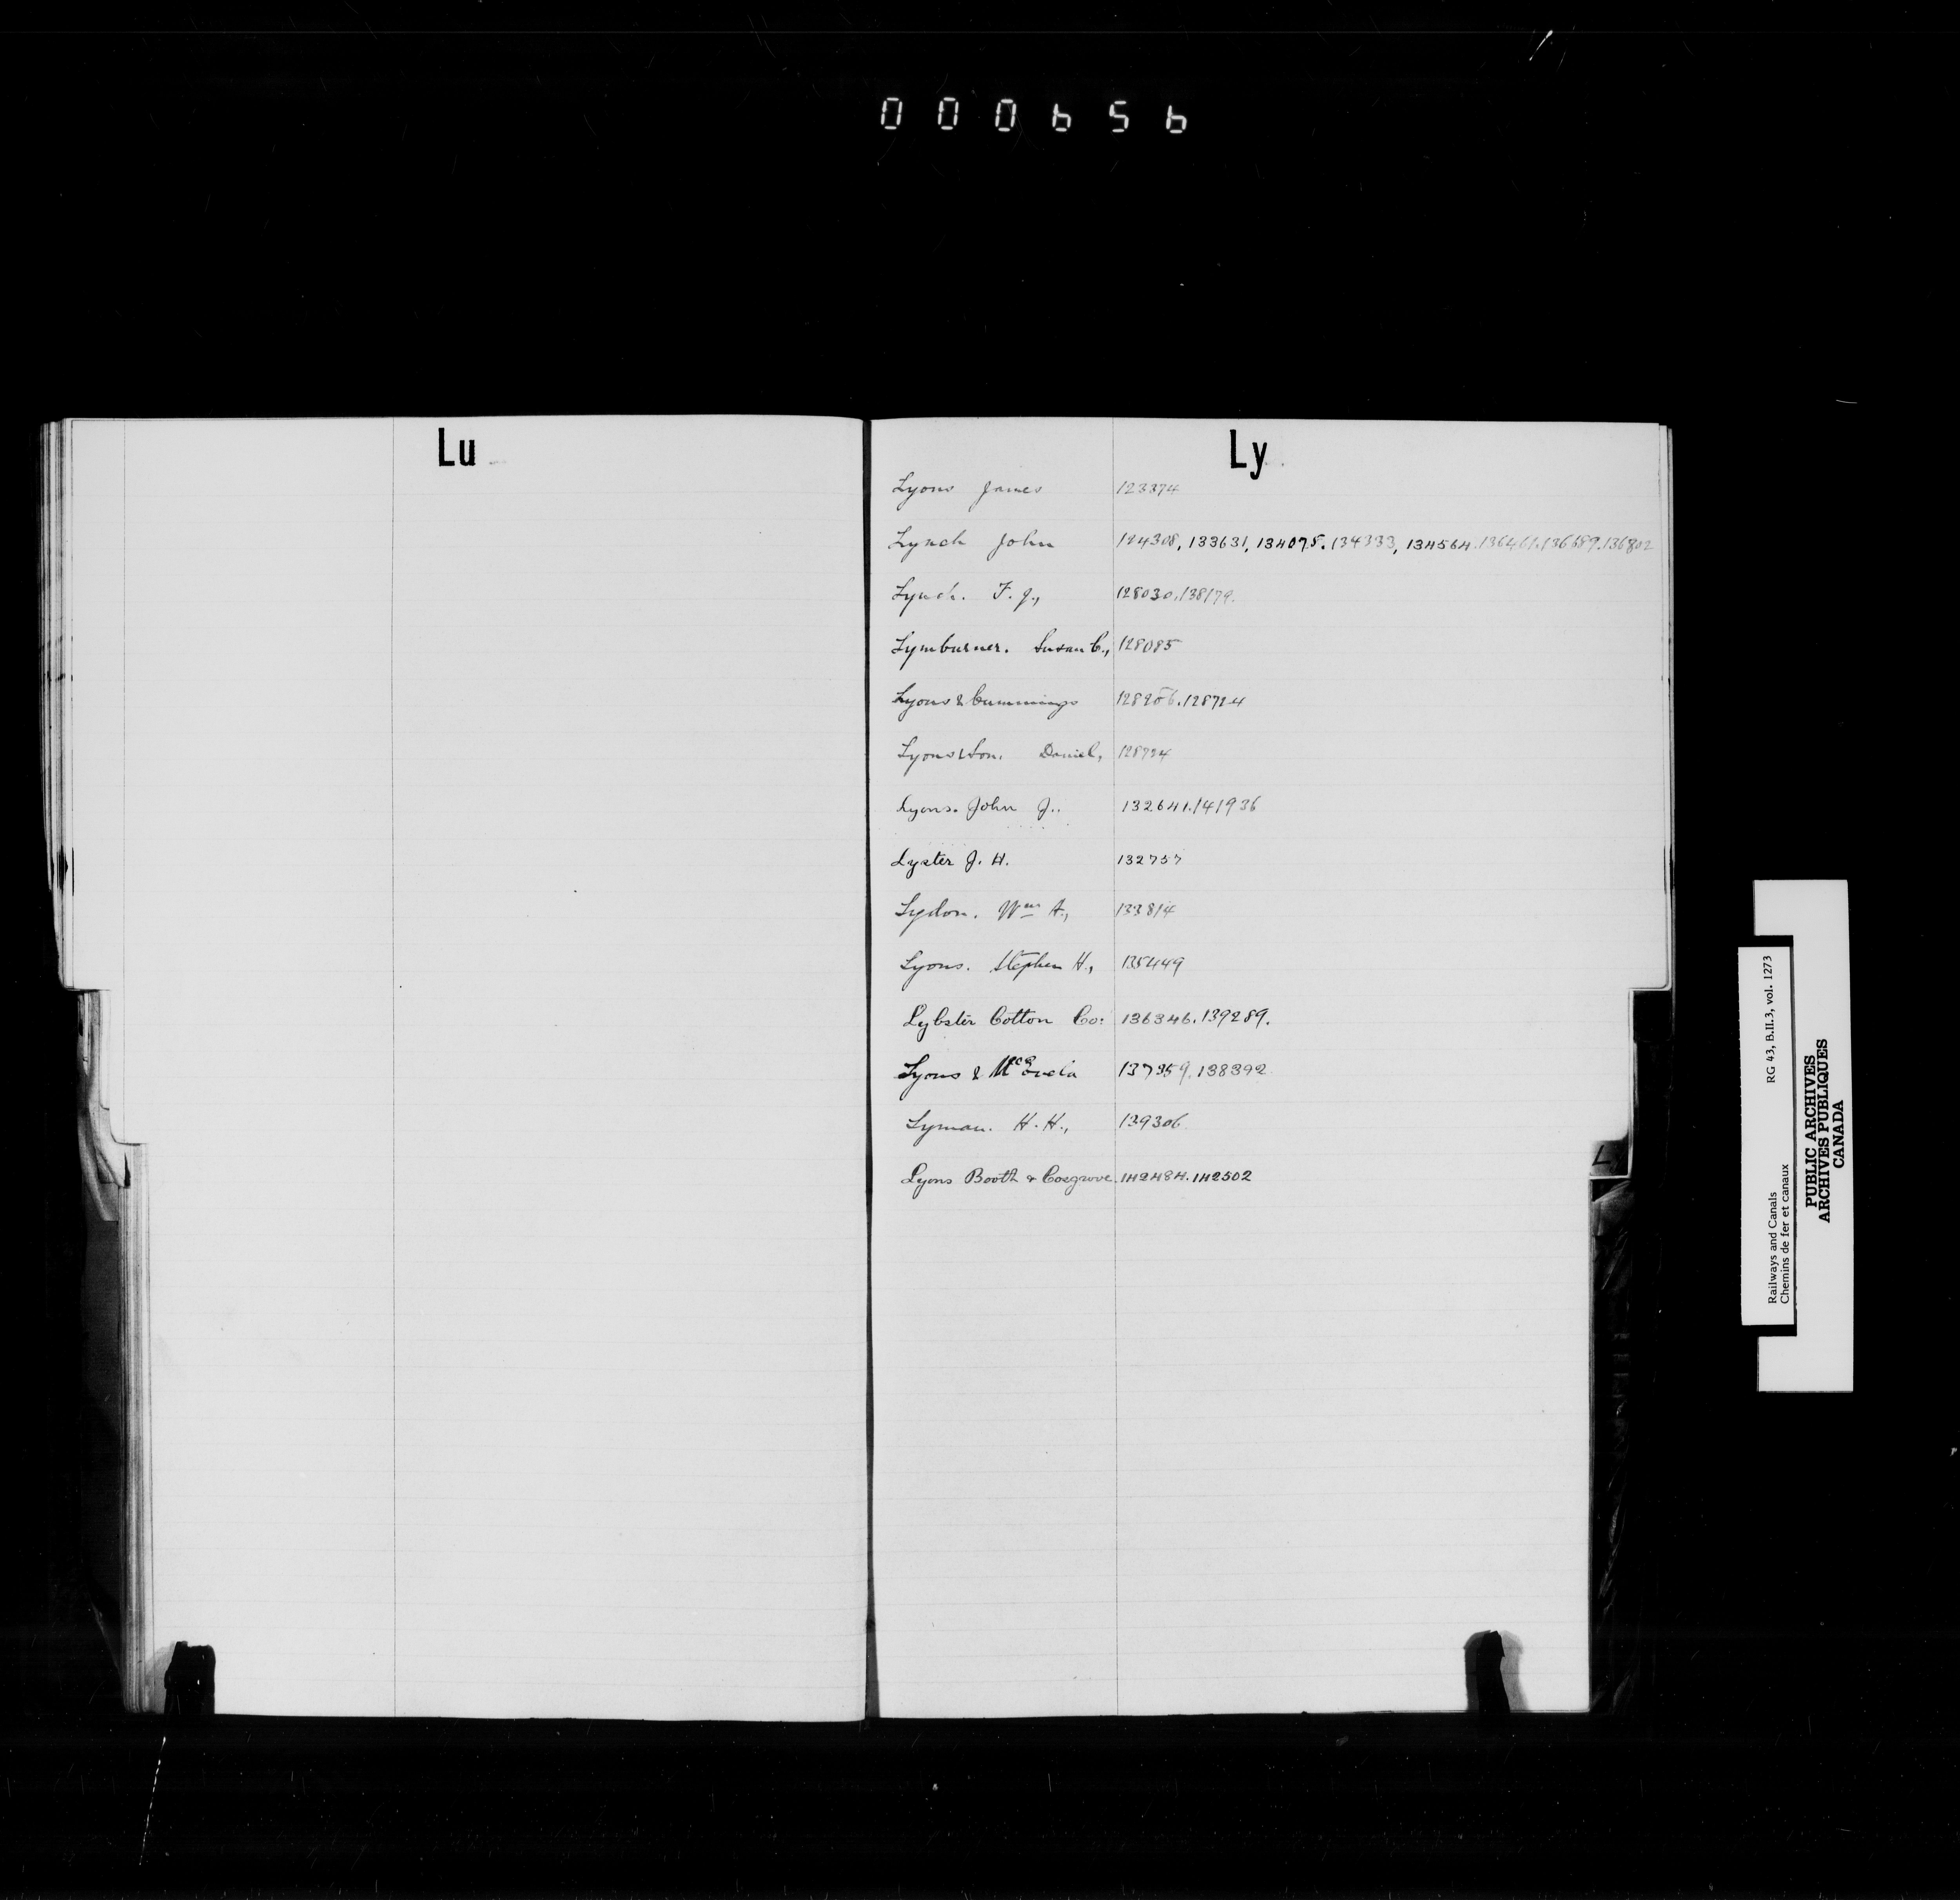 000656
Lu
Ly
Lyons James 123374
Lynch John 124308, 133631, 134075. 134333, 134564. 136461. 136689. 136802
Lynch. F. J., 128030. 138179.
Lymburner. Susan C., 128085
Lyons & Cummings 128256. 128724
Lyons & Son. Daniel, 128724
Lyons. John J.. 132641. 141936
Lyster J. H. 132757
Lydon. Wm A., 133814
Lyons. Stephen H., 135449
Lybster Cotton Co: 136346. 139289.
Lyons & 137359. 138392
Lyman. H. H., 139306
Lyons Booth & Cosgrove. 142484. 142502
L
Railways and Canals RG 43, B.II.3, vol. 1273
Chemins de fer et canaux
PUBLIC ARCHIVES
ARCHIVES PUBLIQUES
CANADA